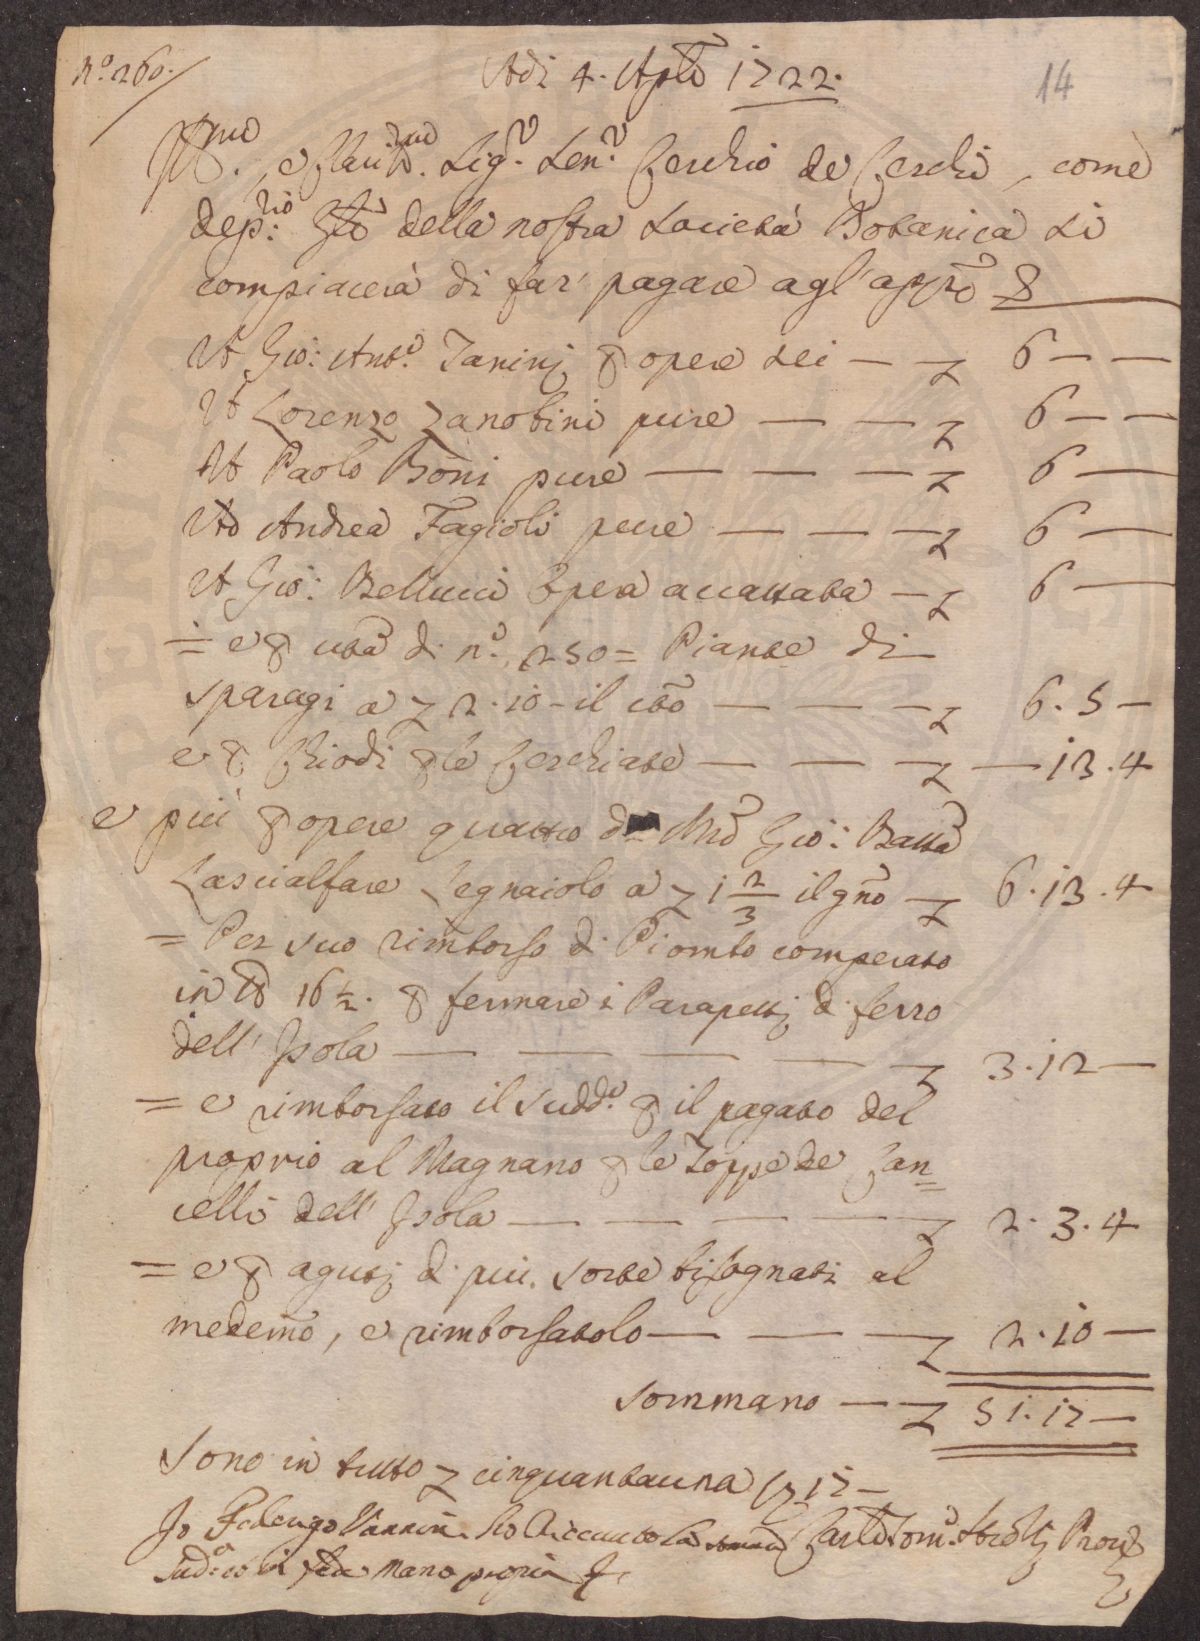 N.º 260.
14
Adi 4. Aple 1722.
Ill.mo, e Clariss.mo Sig.r Sen.r Cerchio de Cerchi, come
dep.rio della nostra Società Botanica si
compiacerà di far' pagare agl'appiè
A Gio: Ant.o Zaninj p opere sei — — 6 — —
A Lorenzo Zanobini pure — — 6 — —
A Paolo Boni pure — — — 6 —
Ad Andrea Fagioli pure — — — 6 —
A Gio: Bellucci opera accattata — 6 —
= e p uta di n.º 250 = Piante di
sparagi a 2.10 - il cto — — — 6.5 —
e p Chiodi p le Cerchiate — — — — 13.4
e più p opere quattro di Mro Gio: Batta
Lascialfare Legnaiolo a 1 2/3 il gno — 6.13.4
= Per suo rimborso di Piombo comperato
in lb 16 1/2. p fermare i Parapettj di ferro
dell' Isola — — — — 3.12 —
= e rimborsato il sudd.o p il pagato del
proprio al Magnano p le Toppe de Can=
celli dell' Isola — — — — 2.3.4
= e p agutj di più sorte bisognati al
medemo, e rimborsatolo — — — 2.10 —
Sommano — — 51.17 —
Sono in tutto cinquantauna 17 —
Io Federigo Vannini ho Riceuuto la somma
Sud.a io di mano propria
Prove